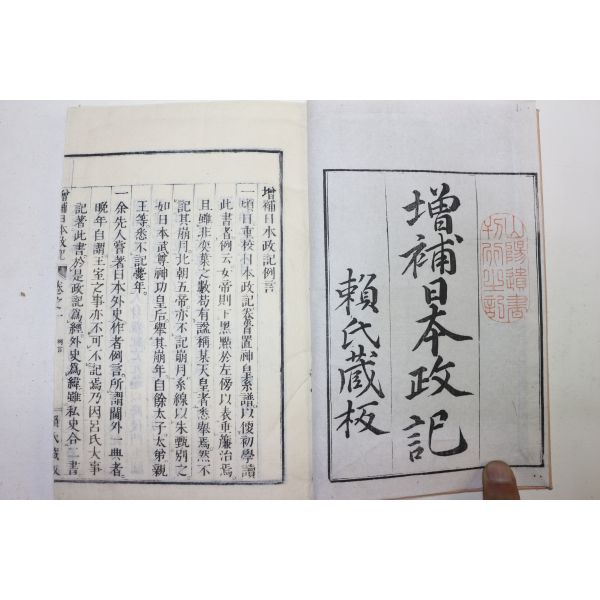 山陽遺書
增補日本政記
賴氏蔵板
增補日本政記例言
一頃日重校日本政記卷首置神皇系譜以便初學讀
此書者例云女帝則下黑點於左傍以表垂簾治焉
且雖非奕葉之數苟有謚稱某天皇者悉舉焉然不
記其崩月北朝五帝亦不記崩月系線以朱甄別之
如日本武尊神功皇后舉其崩年自餘太子太弟親
王等悉不記薨年
一余先人嘗著日本外史作者例言所謂闕外一典者
晚年自謂王室之事亦不可不記焉乃因呂氏大事
記著此書於是政記爲經外史爲緯雖私史合二書
增補日本政記 卷之一 例言 賴氏蔵板